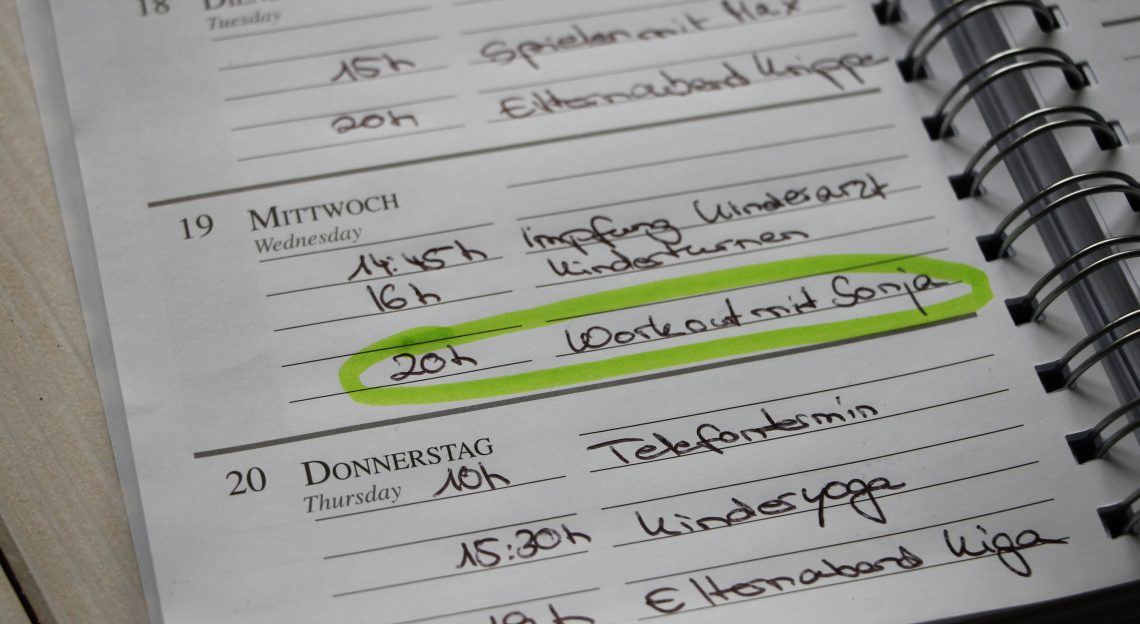 18
Tuesday
15h Spielen mit Max
20h Elternabend Krippe
19 MITTWOCH
Wednesday
14:45h Impfung Kinderarzt
16h Kinderturnen
20h Workout mit Sonja
20 DONNERSTAG
Thursday
10h Telefontermin
15:30h Kinderyoga
19h Elternabend Kiga